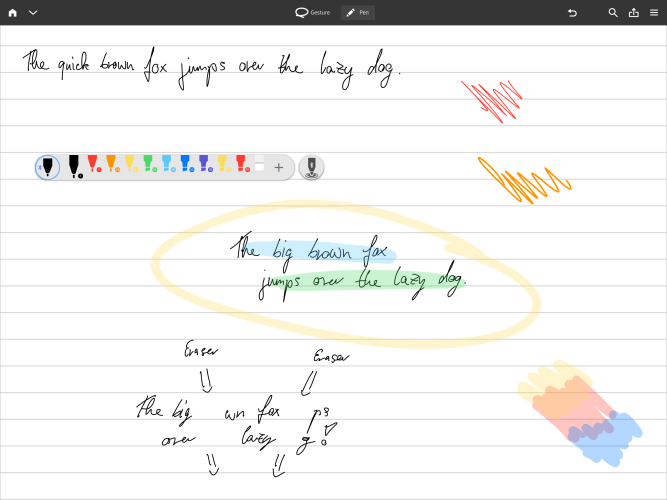 Gesture Pen
The quick brown fox jumps over the lazy dog.
The big brown fox
jumps over the lazy dog.
Eraser Eraser
The big wn fox
over lazy g